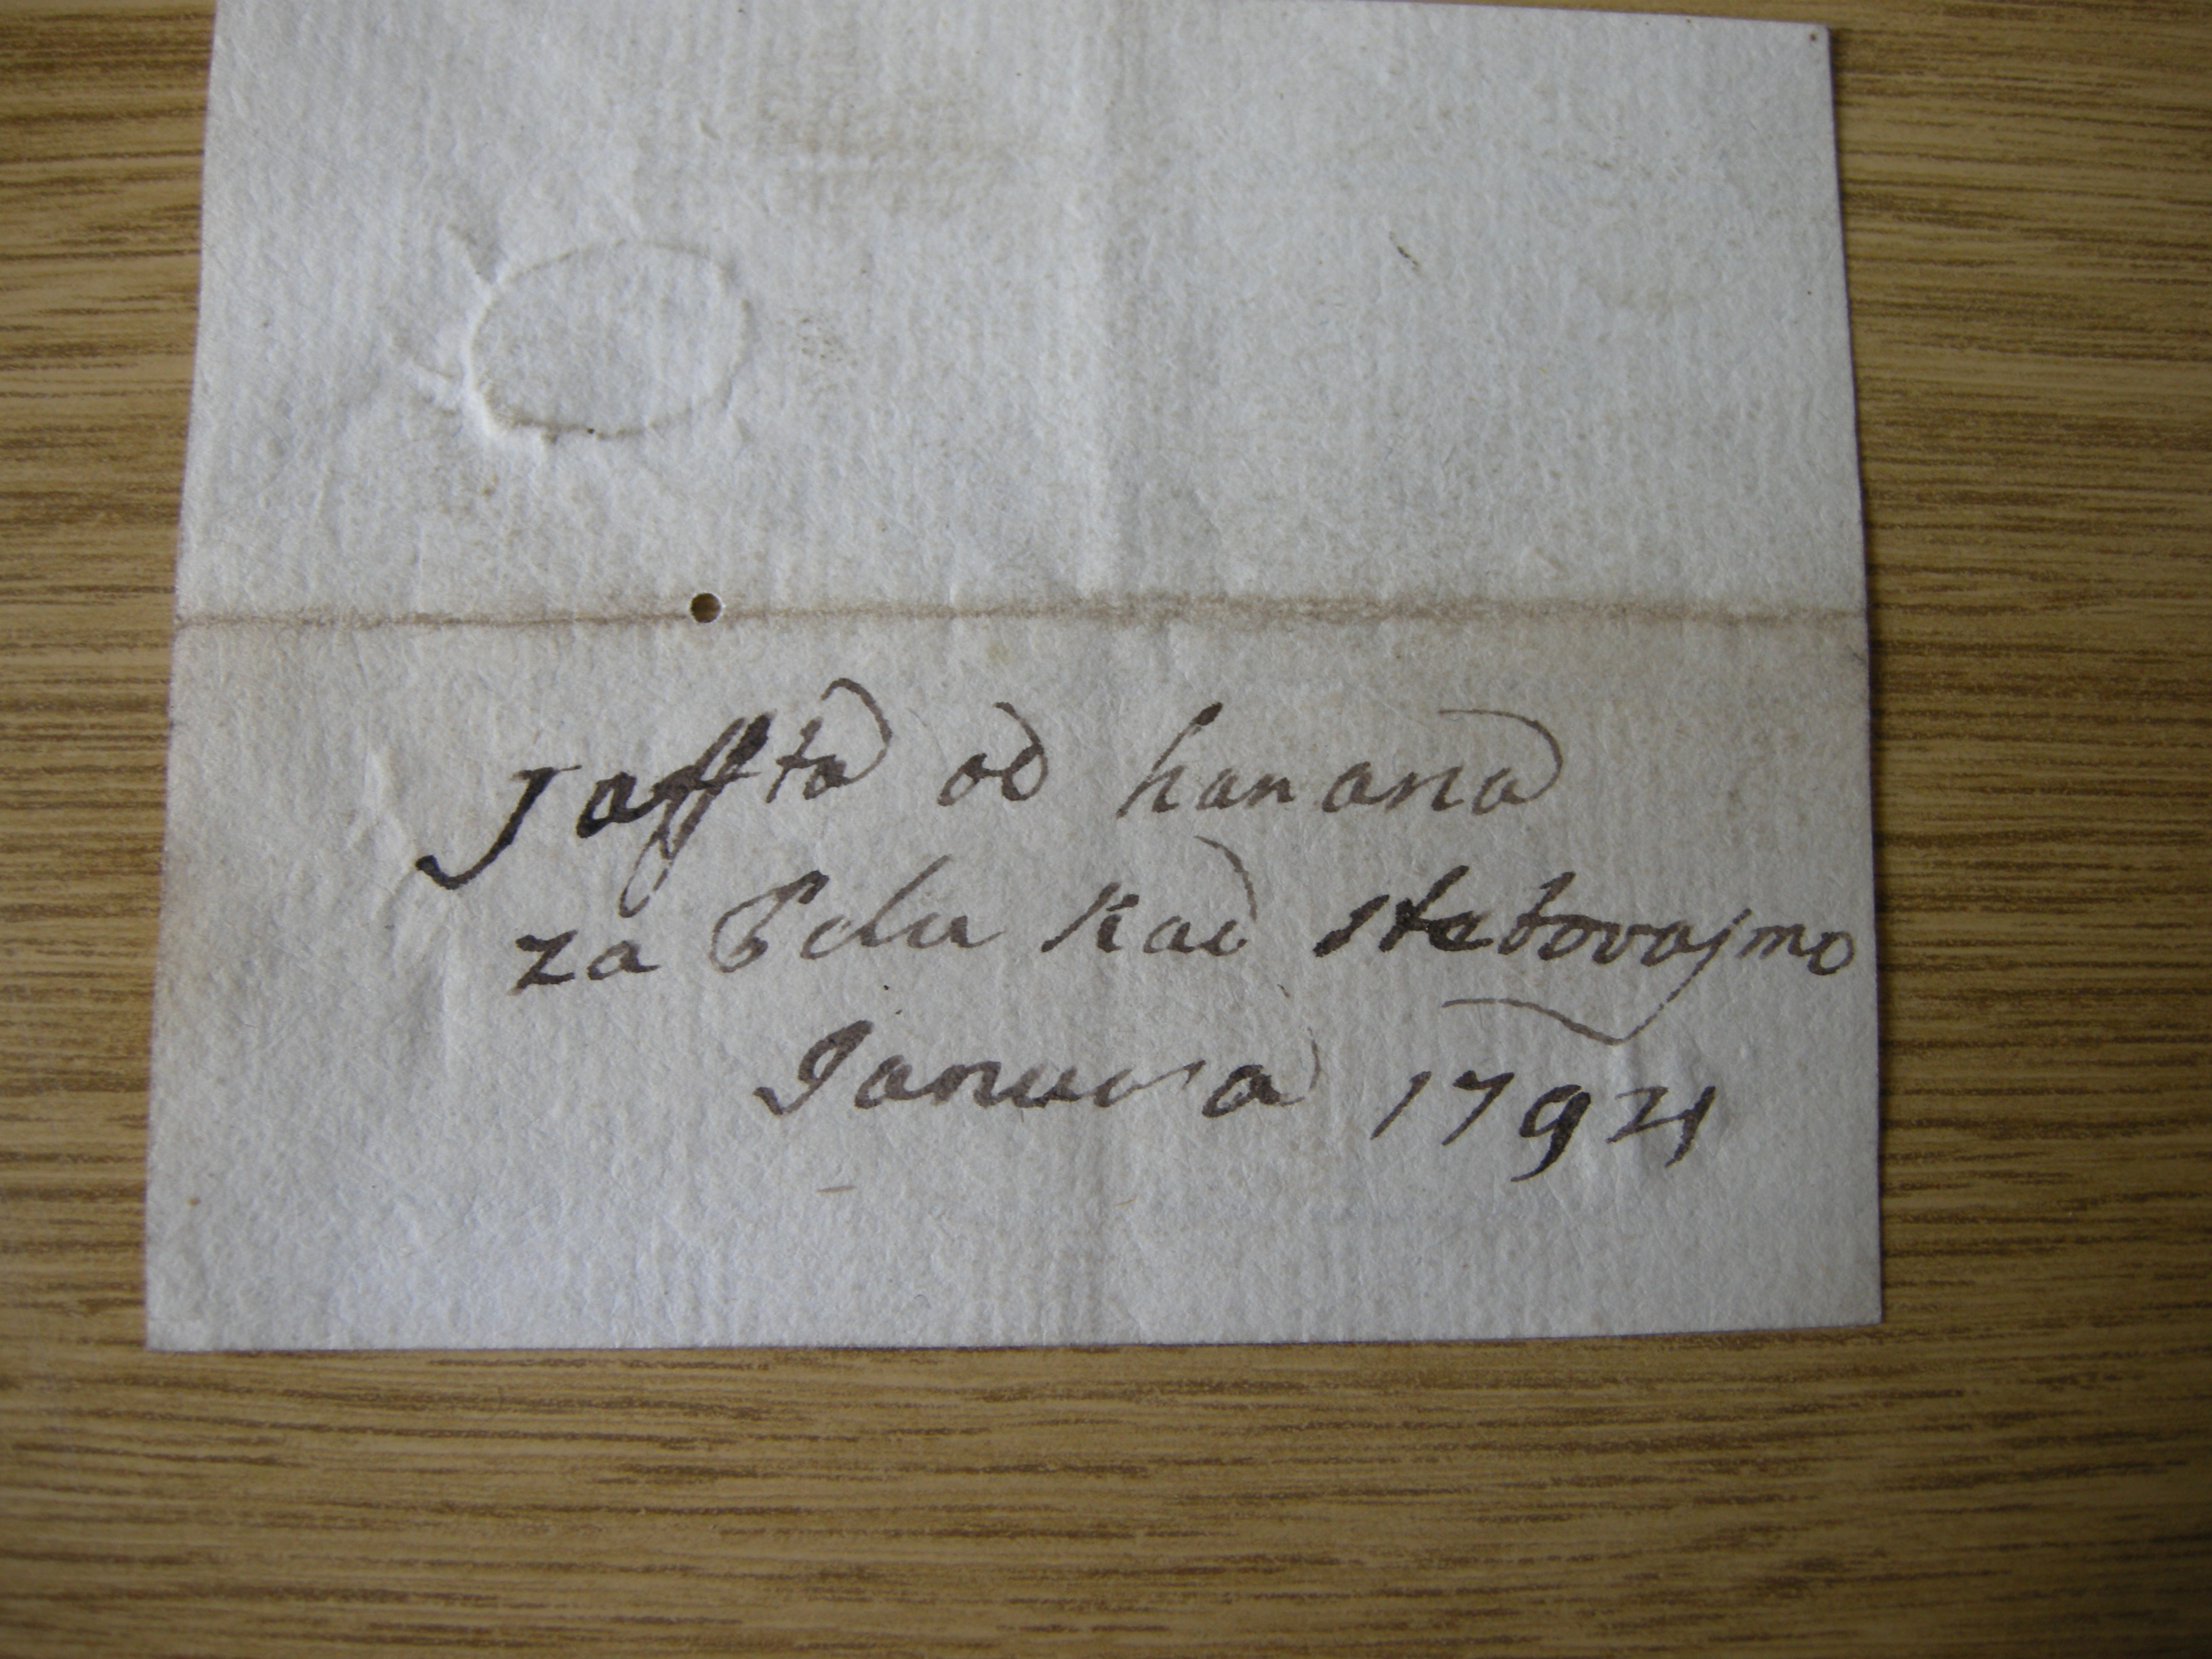 Jaffta od hanana
za Belu kad stetovajmo
Januara 1794